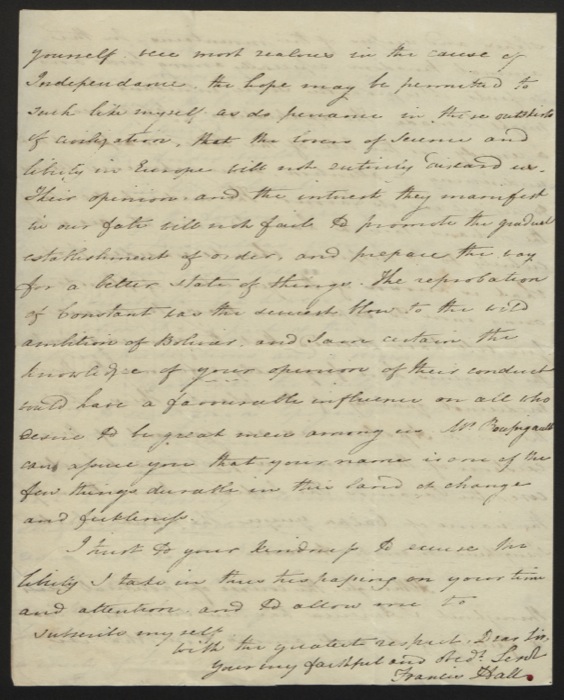 yourself were most zealous in the cause of
Independance. the hope may be permitted to
such like myself as do remain in these outskirts
of civilization, that the lovers of Science and
liberty in Europe will not entirely discard us.
Their opinion and the interest they manifest
in our fate will not fail to promote the gradual
establishment of order, and prepare the way
for a better state of things. The reprobation
of Constant was the severest blow to the wild
ambition of Bolivar. and I am certain the
knowledge of your opinion of their conduct
would have a favourable influence on all who
desire to be great men among us. Mr
can assure you that your name is one of the
few things durable in this land of change
and fickleness.
I trust to your kindness to excuse the
liberty I take in thus trespassing on your time
and attention. and to allow me to
subscribe myself
with the greatest respect. Dear Sir.
Your very faithful and Obedt. Servt
Francis Hall.